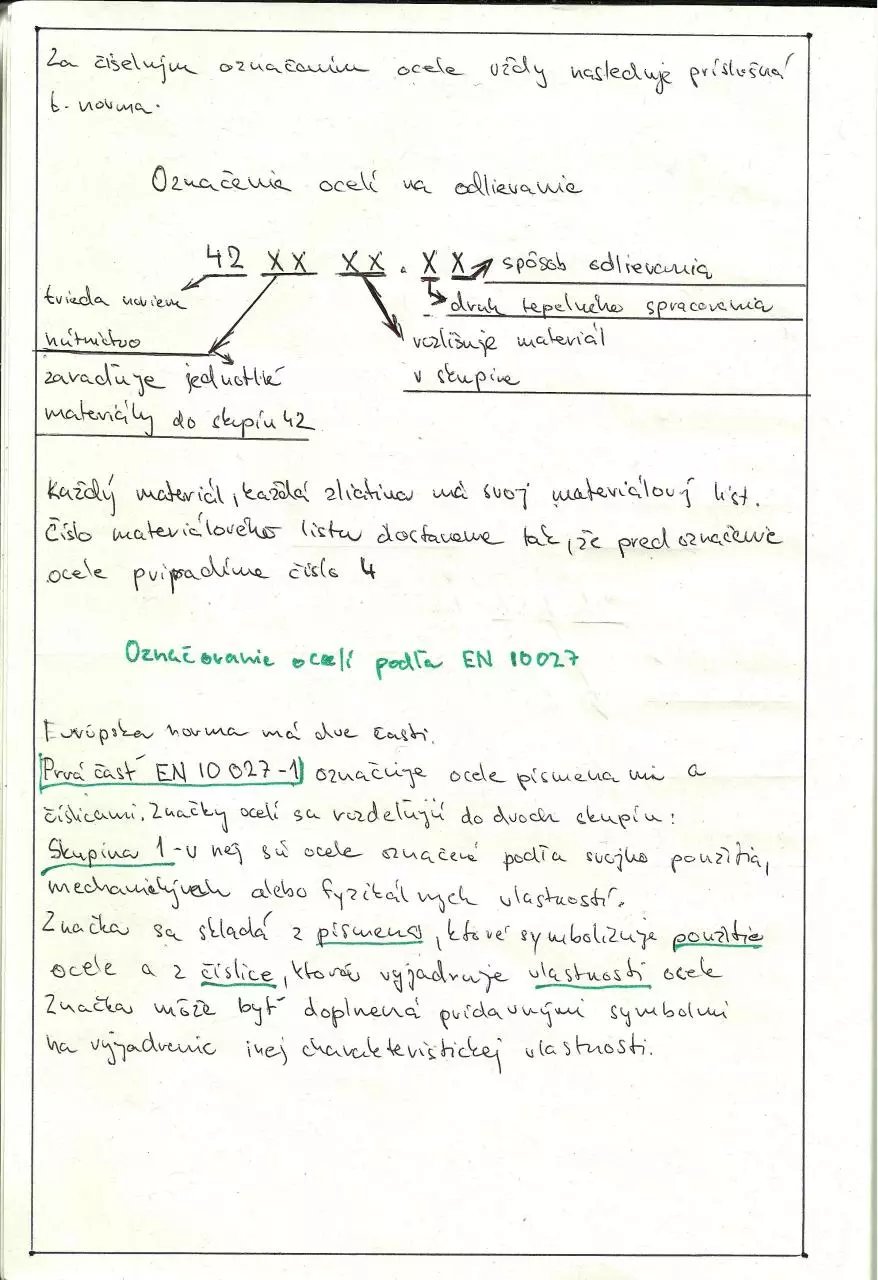 Za číselným označením ocele vždy nasleduje príslušná
t. norma.
Označenie ocelí na odlievanie
42 XX XX . XX spôsob odlievania
trieda noriem
druh tepelného spracovania
hutníctvo
rozlišuje materiál
zaraďuje jednotlivé
v skupine
materiály do skupín 42
Každý materiál, každá zliatina má svoj materiálový list.
Číslo materiálového listu dostaneme tak, že pred označenie
ocele pripadíme číslo 4
Označovanie ocelí podľa EN 10027
Európska norma má dve časti.
Prvá časť EN 10 027-1 označuje ocele písmenami a
číslicami. Značky ocelí sa rozdeľujú do dvoch skupín:
Skupina 1 - v nej sú ocele označené podľa svojho použitia,
mechanických alebo fyzikálnych vlastností.
Značka sa skladá z písmena, ktoré symbolizuje použitie
ocele a z číslice, ktorá vyjadruje vlastnosti ocele
Značka môže byť doplnená prídavnými symbolmi
na vyjadrenie inej charakteristickej vlastnosti.